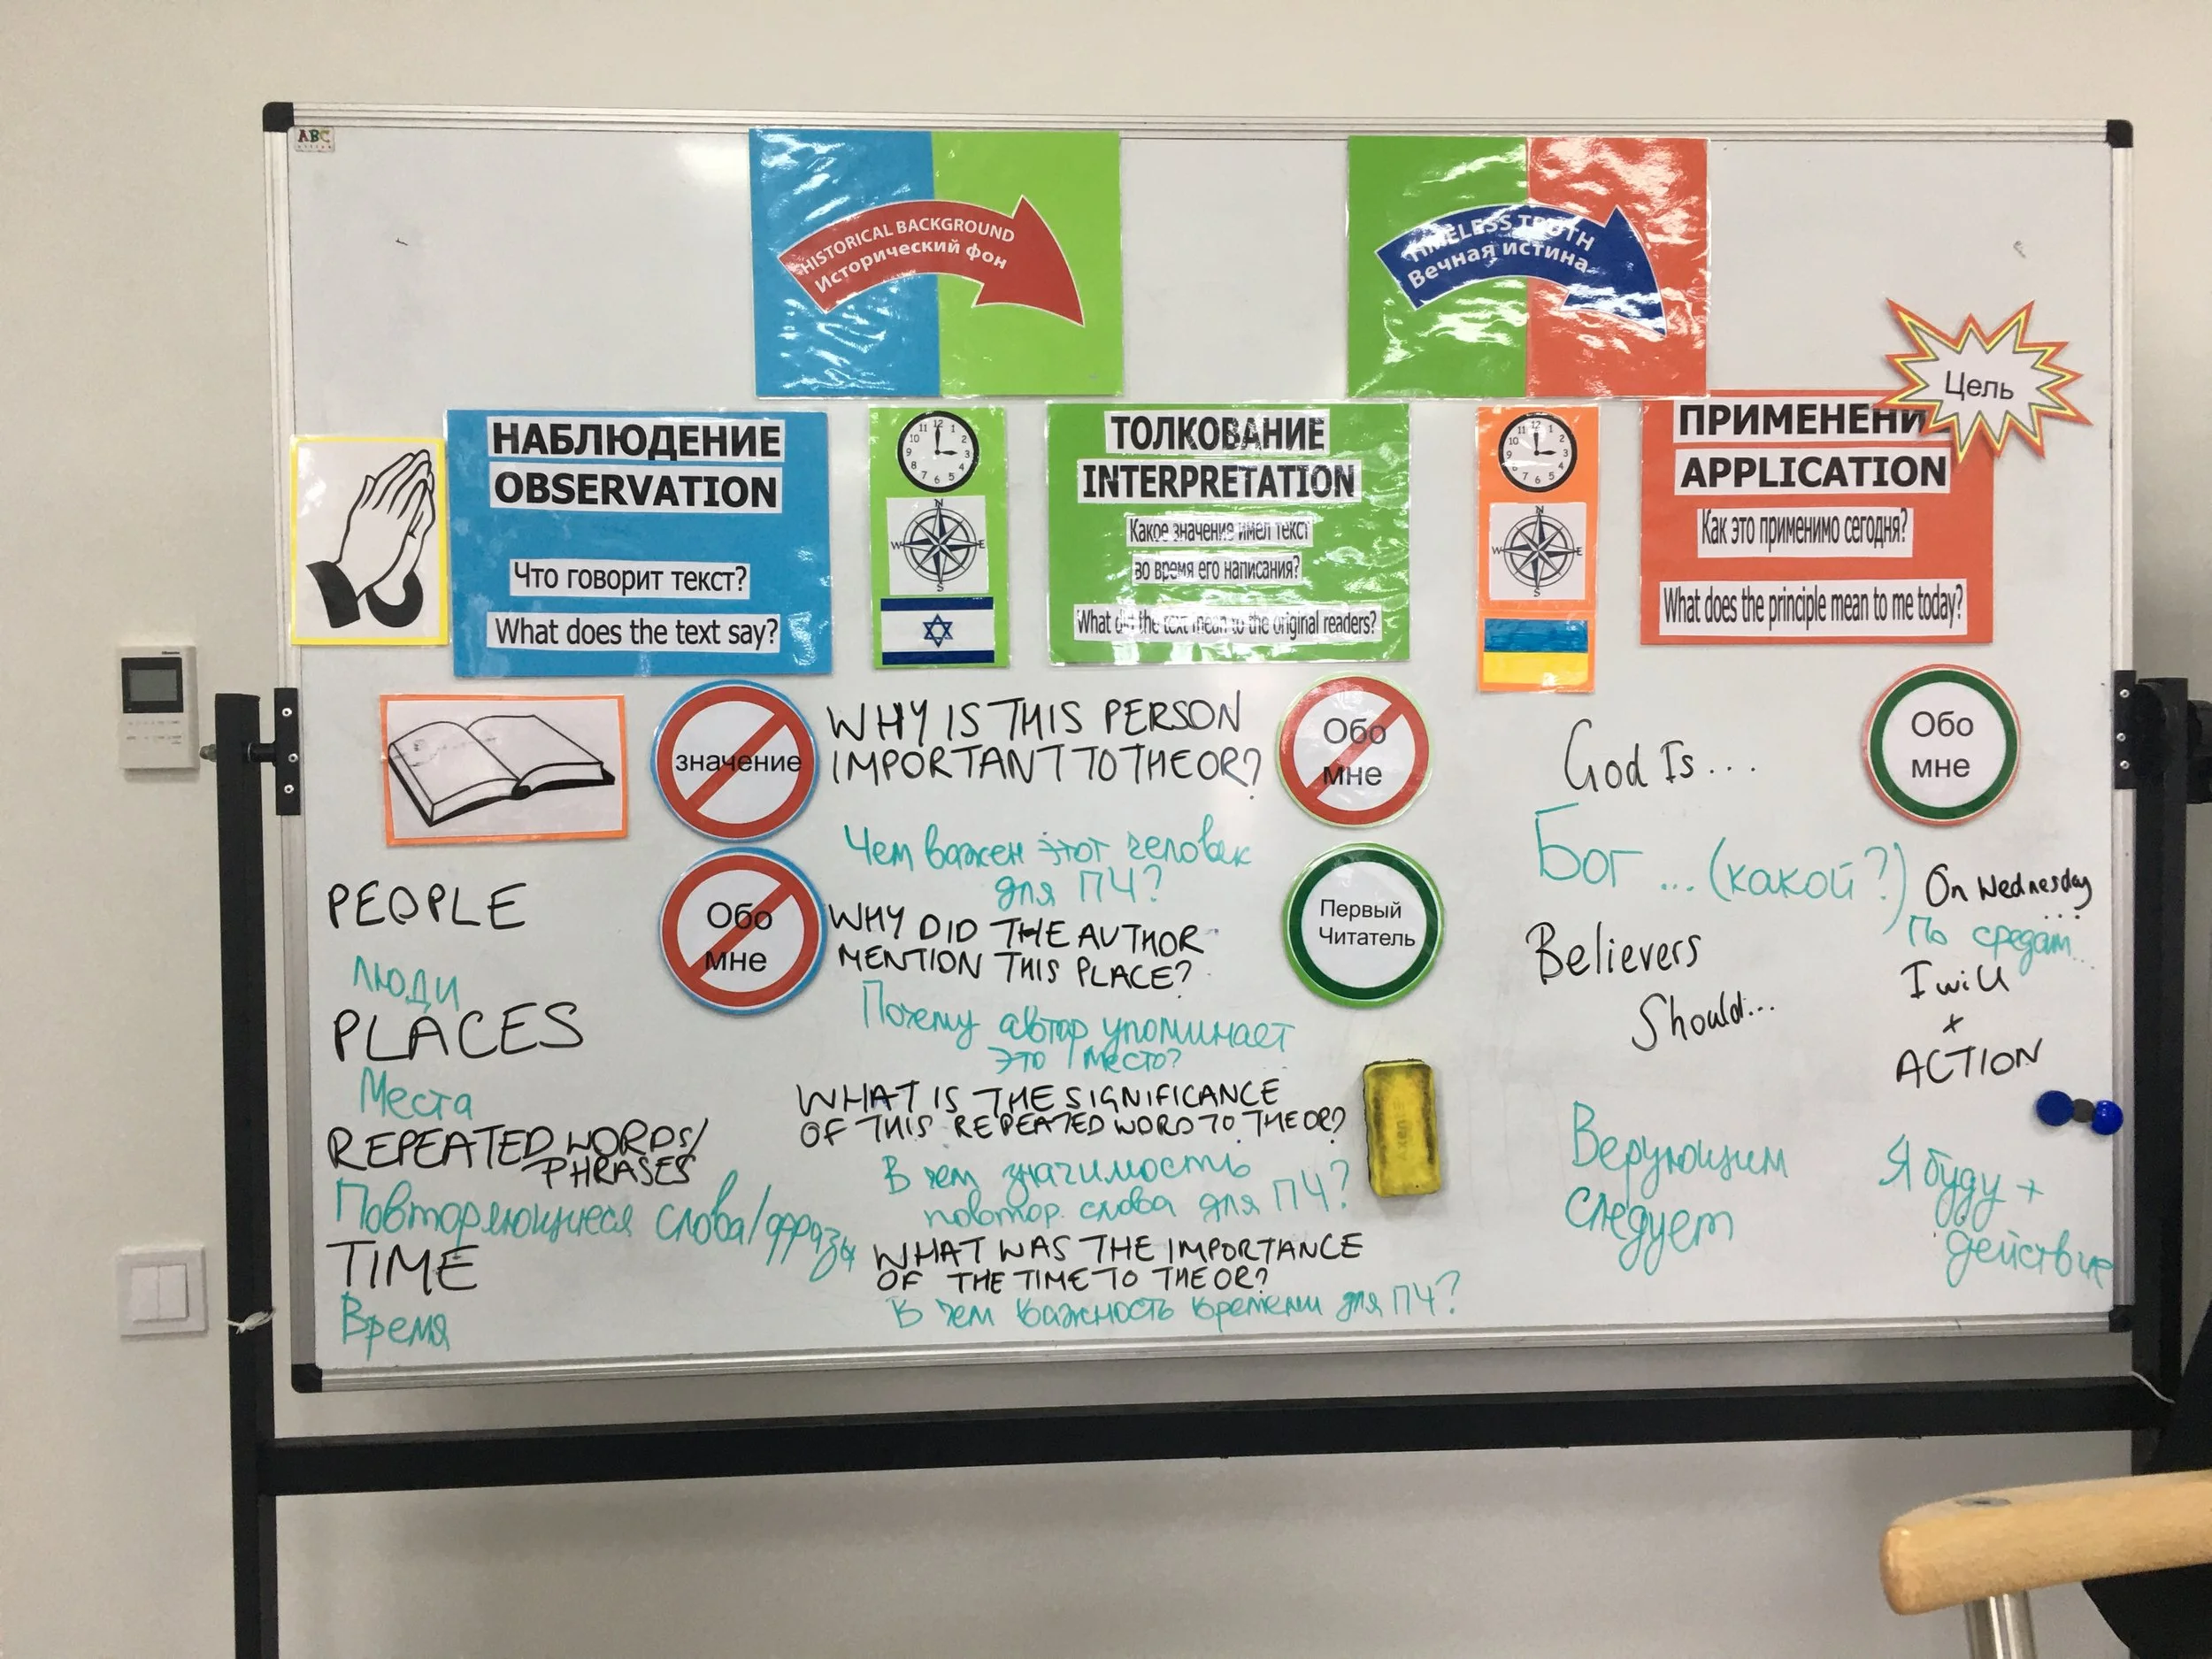 ABC
HISTORICAL BACKGROUND
Исторический фон
TIMELESS TRUTH
Вечная истина
Цель
НАБЛЮДЕНИЕ
OBSERVATION
Что говорит текст?
What does the text say?
12
11 1
10 2
9 3
8 4
7 6 5
N
W E
S
ТОЛКОВАНИЕ
INTERPRETATION
Какое значение имел текст
во время его написания?
What did the text mean to the original readers?
12
11 1
10 2
9 3
8 4
7 6 5
N
W E
S
ПРИМЕНЕНИ
APPLICATION
Как это применимо сегодня?
What does the principle mean to me today?
значение
Обо
мне
PEOPLE
люди
PLACES
Места
REPEATED WORDS/
PHRASES
Повторяющиеся слова/фразы
TIME
Время
WHY IS THIS PERSON
IMPORTANT TO THE OR?
Чем важен этот человек
для ПЧ?
WHY DID THE AUTHOR
MENTION THIS PLACE?
Почему автор упоминает
это место?
WHAT IS THE SIGNIFICANCE
OF THIS REPEATED WORD TO THE OR?
В чем значимость
повтор. слова для ПЧ?
WHAT WAS THE IMPORTANCE
OF THE TIME TO THE OR?
В чем важность времени для ПЧ?
Обо
мне
Первый
Читатель
God Is...
Бог ... (какой?)
Believers
Should...
Верующим
следует
Обо
мне
On Wednesday
...
По средам...
I will
+
ACTION
Я буду +
действие